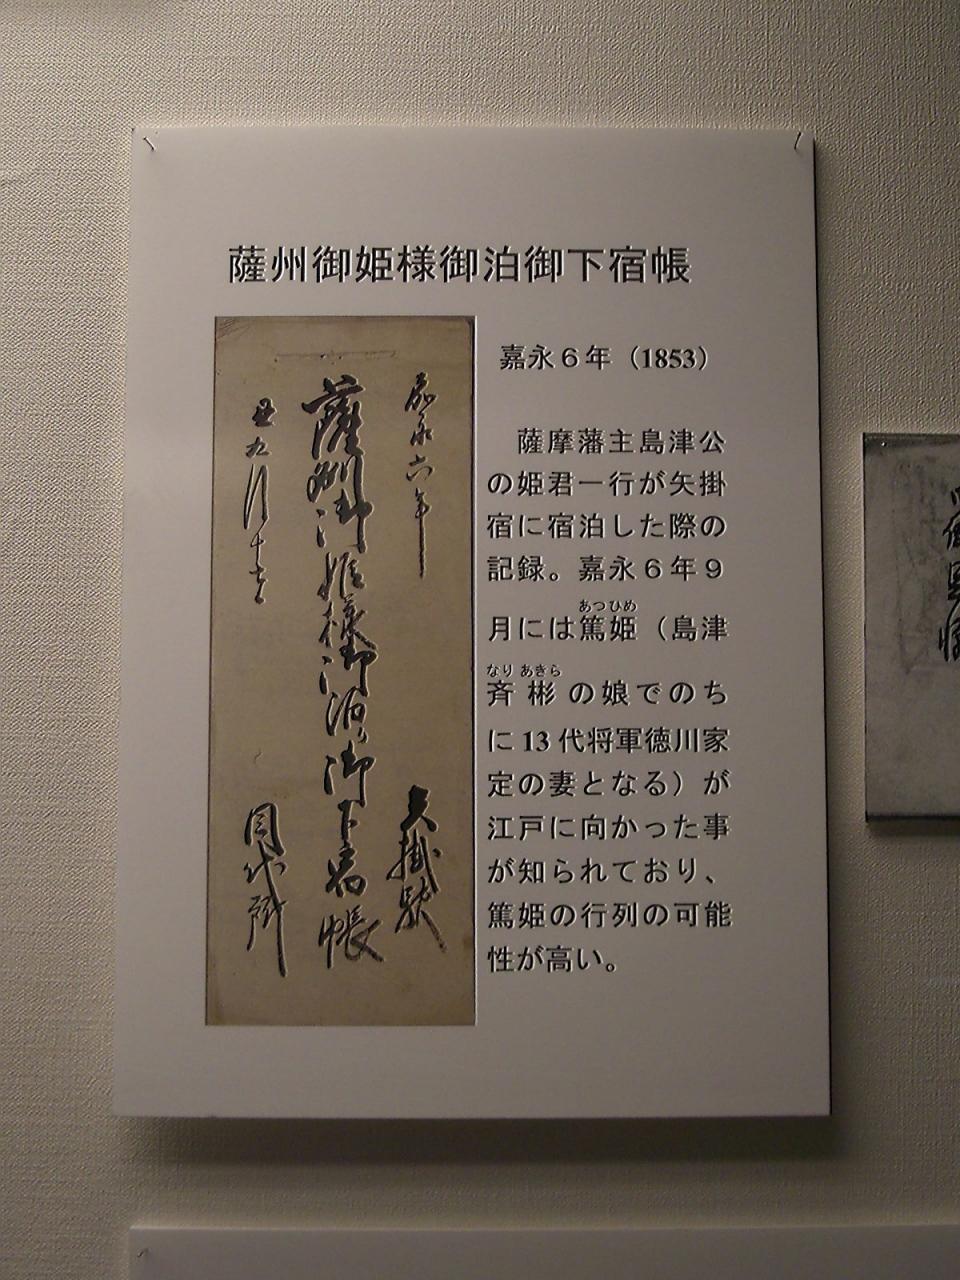 薩州御姫様御泊御下宿帳
嘉永６年（1853）
薩摩藩主島津公
の姫君一行が矢掛
宿に宿泊した際の
記録。嘉永６年９
あつひめ
月には篤姫（島津
なり あきら
斉彬の娘でのち
に13代将軍徳川家
定の妻となる）が
江戸に向かった事
が知られており、
篤姫の行列の可能
性が高い。
嘉永六年
矢掛駅
薩州御姫様御泊り御下宿帳
丑九月十
目代所